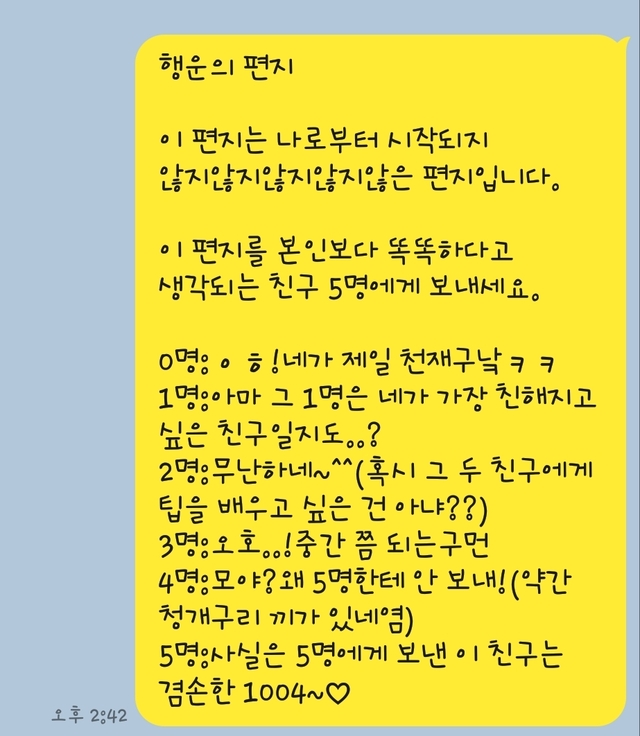 행운의 편지
이 편지는 나로부터 시작되지
않지않지않지않지않은 편지입니다.
이 편지를 본인보다 똑똑하다고
생각되는 친구 5명에게 보내세요.
0명:ㅇㅎ!네가 제일 천재구낰ㅋㅋ
1명:아마 그 1명은 네가 가장 친해지고
싶은 친구일지도..?
2명:무난하네~^^(혹시 그 두 친구에게
팁을 배우고 싶은 건 아냐??)
3명:오호..!중간 쯤 되는구먼
4명:모야?왜 5명한테 안 보내!(약간
청개구리 끼가 있네염)
5명:사실은 5명에게 보낸 이 친구는
겸손한 1004~♡
오후 2:42